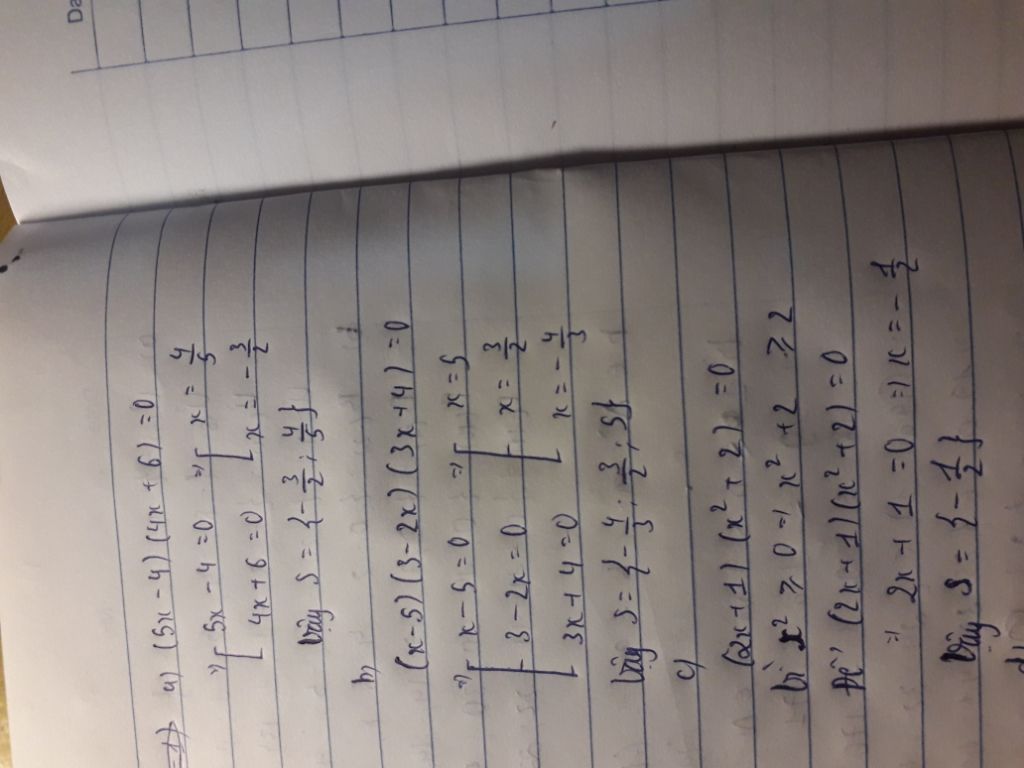 Da
1) a) (5x - 4)(4x + 6) = 0
=> [ 5x - 4 = 0 => [ x = 4/5
4x + 6 = 0 x = - 3/2
Vậy S = {- 3/2 ; 4/5}
b)
(x - 5)(3 - 2x)(3x + 4) = 0
=> [ x - 5 = 0 => [ x = 5
3 - 2x = 0 x = 3/2
3x + 4 = 0 x = - 4/3
Vậy S = {- 4/3 ; 3/2 ; 5}
c)
(2x + 1)(x² + 2) = 0
Vì x² ⩾ 0 => x² + 2 ⩾ 2
Để (2x + 1)(x² + 2) = 0
=> 2x + 1 = 0 => x = - 1/2
Vậy S = {- 1/2}